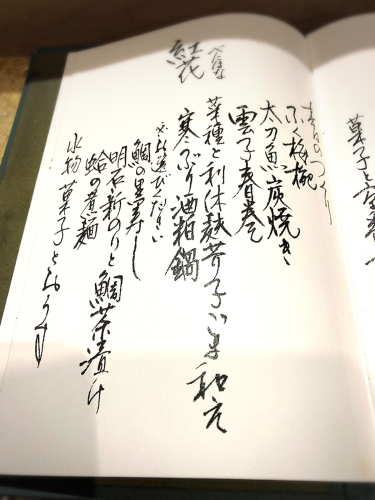 紅花
べにばな
のつくり
ふく梅椀
太刀魚炭焼き
雲子春巻
菜種と利休麩芥子ごま和え
寒ぶり酒粕鍋
※お選びください
鯛の寿し
明石新のりと鯛茶漬け
蛤の煮麺
水物 菓子とおうす
菓子と